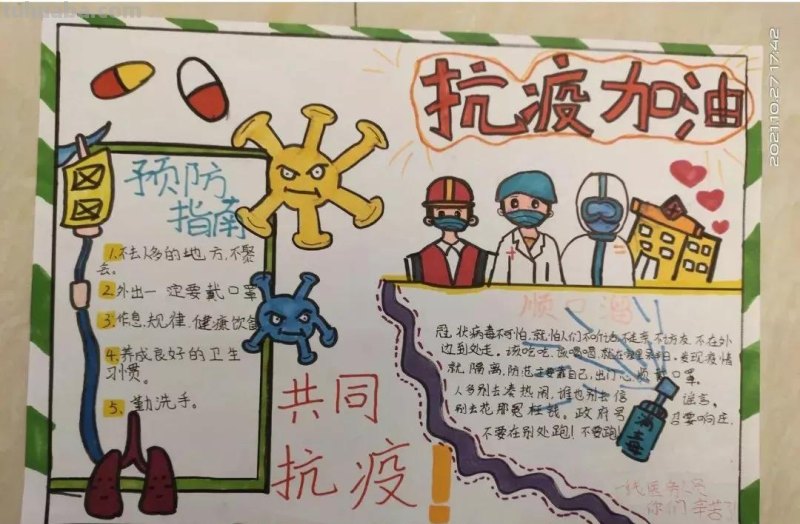 抗疫加油
预防
指南
1.不去人多的地方,不聚
会。
2.外出一定要戴口罩
3.作息规律.健康饮食
4.养成良好的卫生
习惯。
5、勤洗手。
共同
抗疫!
顺口溜
冠状病毒不可怕,就怕人们不听话.不走亲.不访友,不在外
边到处走。该吃吃,该喝喝,就在家里
发现疫情
就隔离,防范主要靠自己,出门
口罩.
人多别去凑热闹,谁也别去信
谣言.
别去花那冤枉钱。政府号
召要响应.
不要在别处跑!不要跑!
病毒
你们辛苦了
2021.10.27 17:42